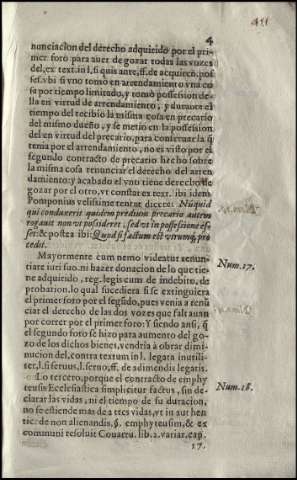 4
nunciacion del derecho adquirido por el pri-
mer foro para auer de gozar todas las vozes
del, ex text. in l. si quis ante, ff. de acquiren. pos
ses. vbi si vno tomò en arrendamiento vna co
sa por tiempo limitado, y tomò possession de
lla en virtud de arrendamiento, y durante el
tiempo del recibio la misma cosa en precario
del mismo dueño, y se metio en la possession
del en virtud de precario, para conseruar la q̃
tenia por el arrendamiento, no es visto por el
segundo contracto de precario hecho sobre
la misma cosa renunciar el derecho del arren
damiento: y acabado el vno tiene derecho de
gozar por el otro, vt constat ex text. ibi idem
Pomponius velissime tentat dicere. Nũquid
qui conduxerit quidem prædium precario autem
rogauit non vt possideret, sed vt in possessione es-
set: & postea ibi: Quod si factum est vtrumq; pro
cedit.
Mayormente cum nemo videatur renun-
tiare iuri suo, ni hazer donacion de lo que tie
ne adquirido, reg. legis cum de indebito, de
probation. lo qual sucediera si se extinguiera
el primer foro por el segũdo, pues venia a renũ
ciar el derecho de las dos vozes que faltauan
por correr por el primer foro: Y siendo ansi, q̃
el segundo foro se hizo para aumento del go-
zo de los dichos bienes, vendria à obrar dimi-
nucion del, contra textum in l. legata inutili-
ser, l. si seruus, l. seruo, ff. de adimendis legatis.
Num. 17.
Lo tercero, porque el contracto de emphy
teusis Ecclesiastica simpliciter factus, sin de-
clarar las vidas, ni el tiempo de su duracion,
no se estiende mas de a tres vidas, vt in aut hen
tic. de non alienandis, §. emphyteusim, & ex
communi resoluit Couarru. lib. 2. variar. cap.
Num. 18.
17.